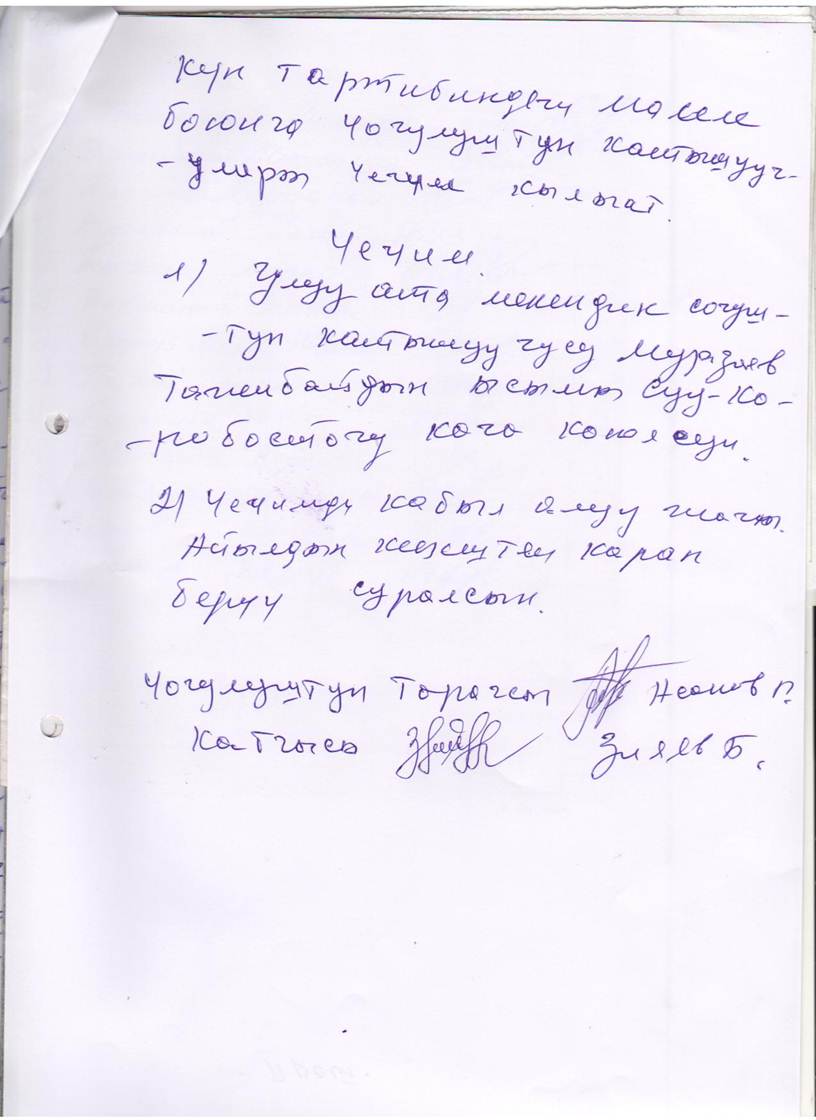 Күн тартибиндеги маселе
боюнча чогулуштун катышууч-
-улары чечим кылыгат.
Чечим.
1) Улуу ата мекендик согуш-
-тун катышуучусу Мурзаев
Ташибайдын ысымы Суу-Ко-
-робостогу кочо коюлсун.
2) Чечимди кабыл алуу жагын
Айылдык кеңештен карап
берүү суралсын.
Чогулуштун Торагасы
Катчысы Зияев Б.